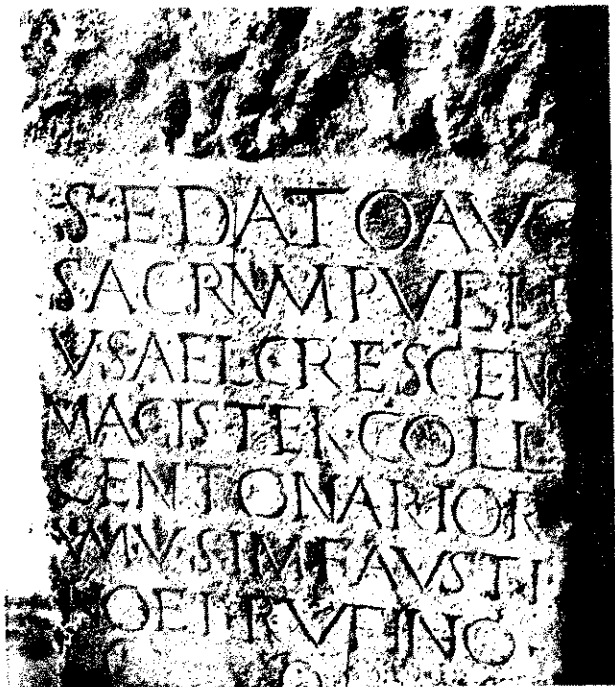 SEDATOAVG
SACRVMPVBLI
VSAELCRESCEN
MAGISTERCOLL
CENTONARIOR
VMVSIMFAVSTI
NOETRVFINO